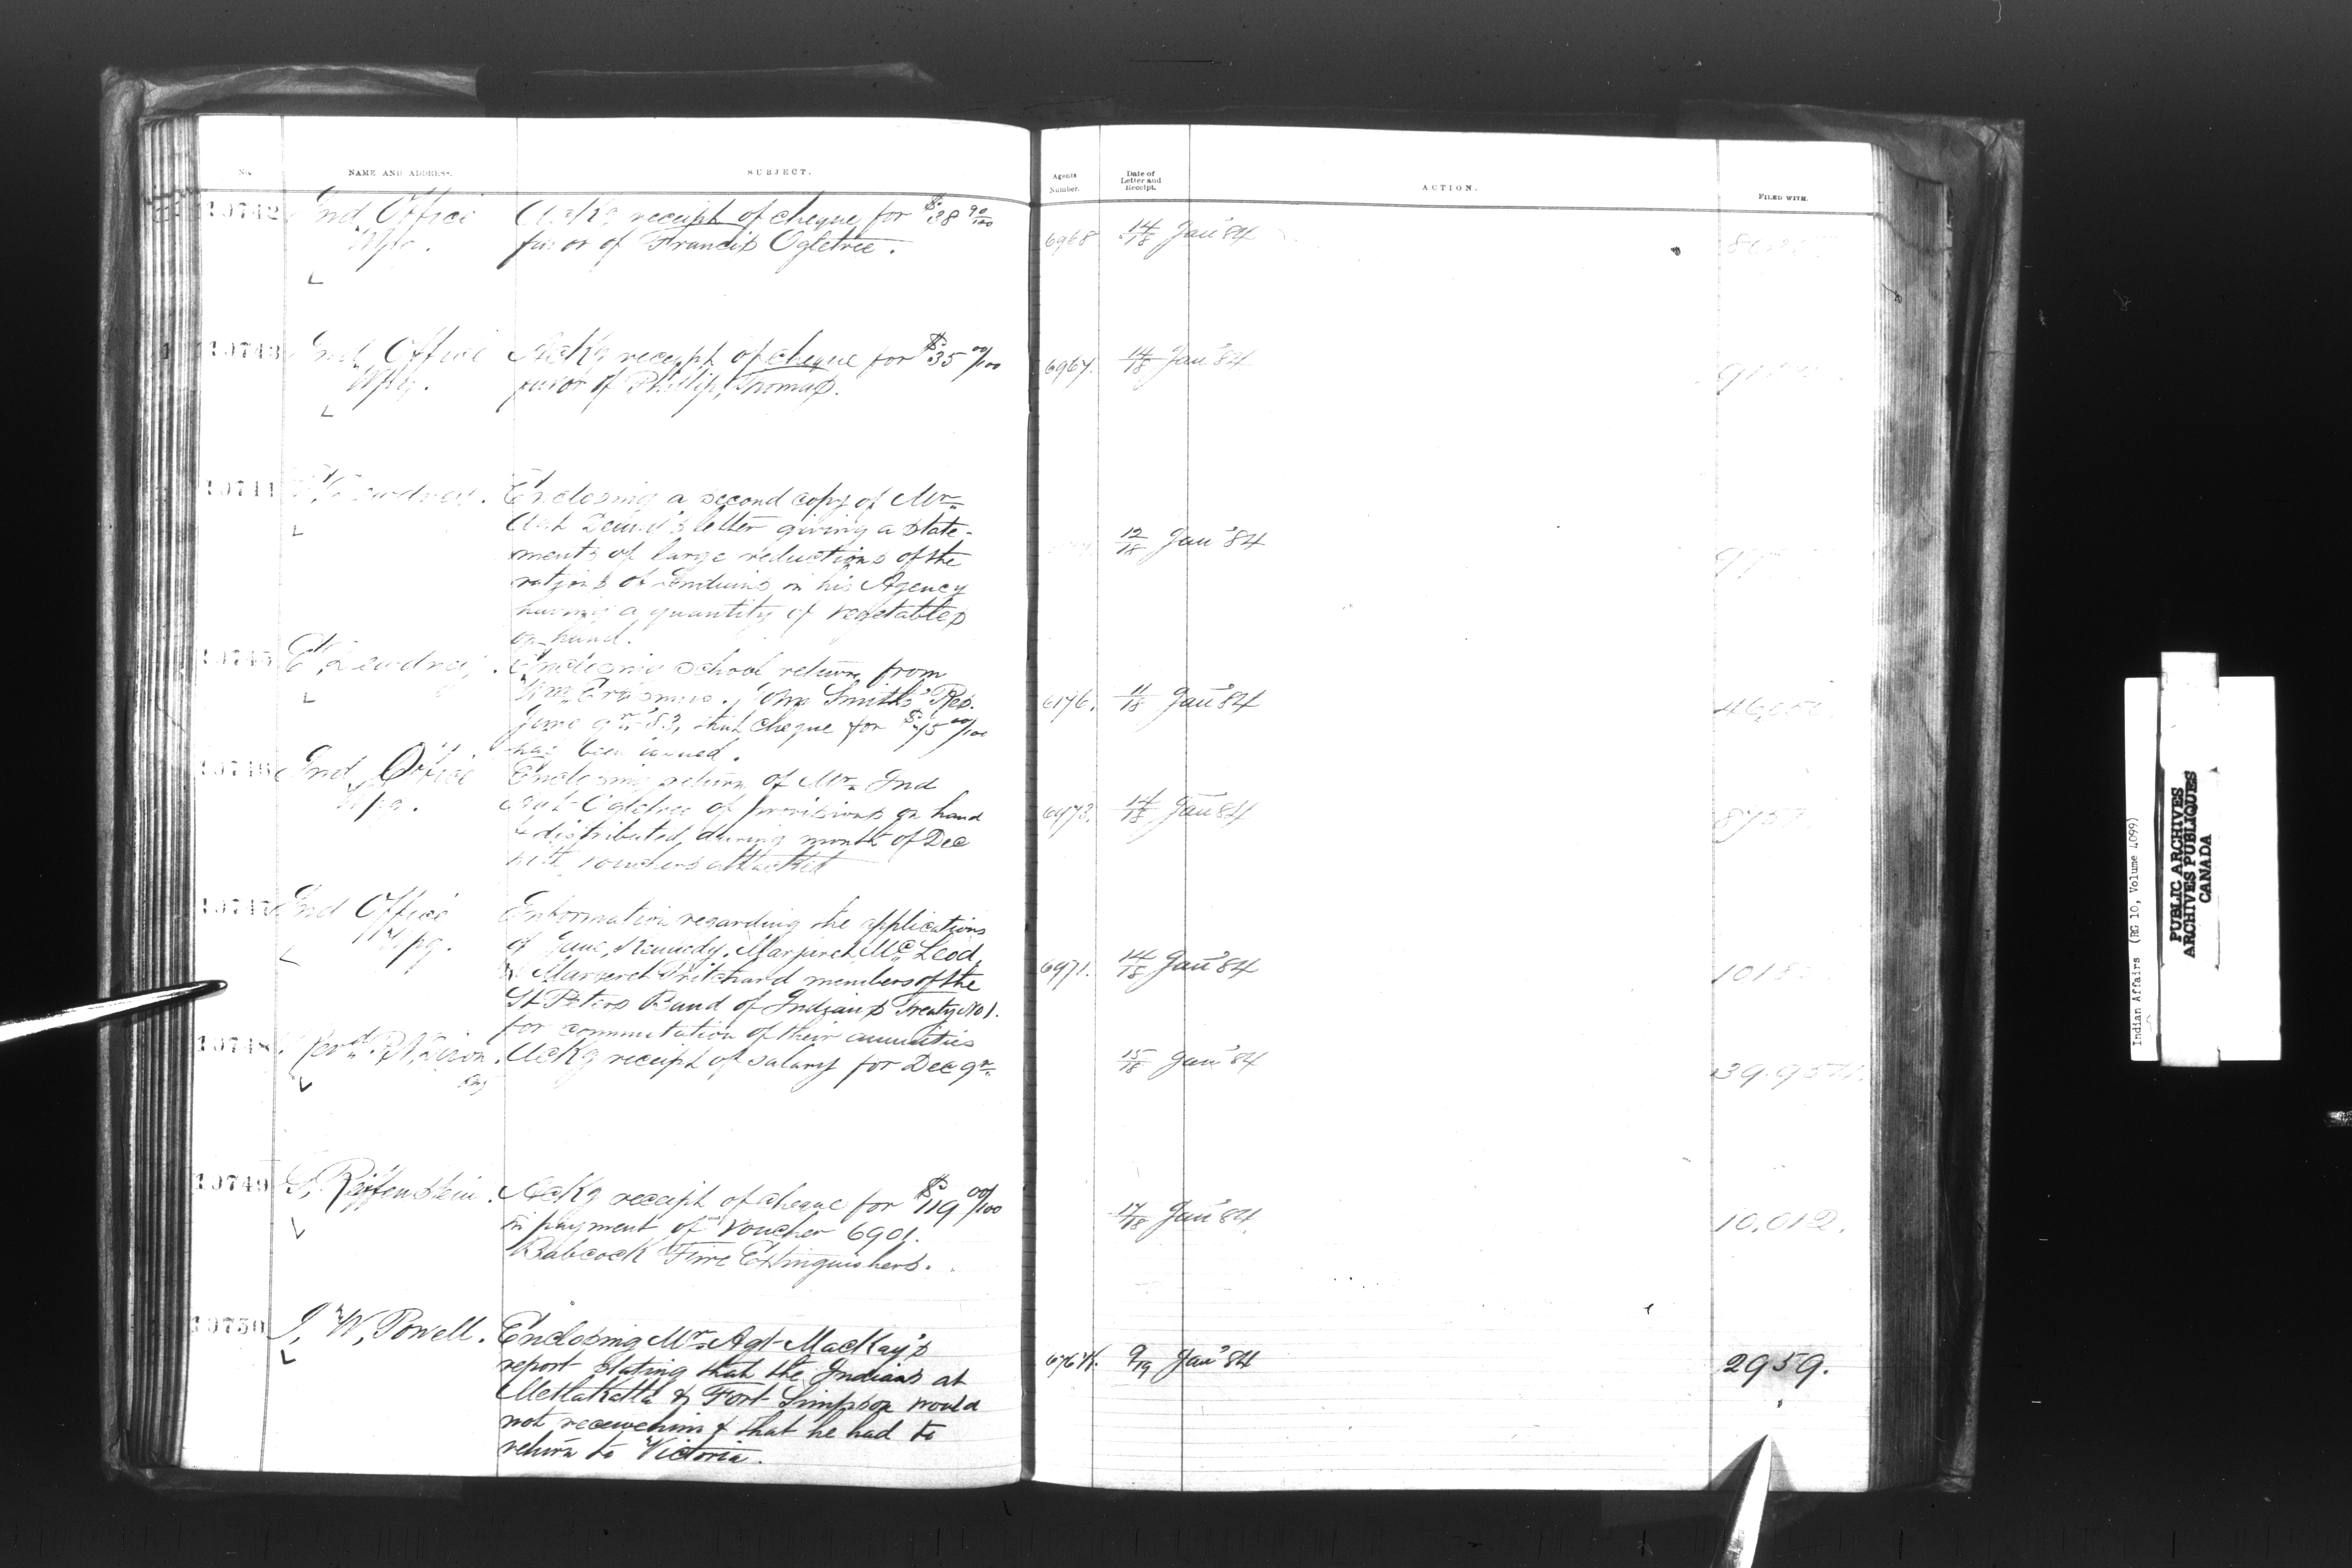 No.
NAME AND ADDRESS.
SUBJECT.
Agents Number.
Date of Letter and Receipt.
ACTION.
FILED WITH.
10742 Ind Office Ackg receipt of cheque for $38 90/100 6968 14/18 Jan'84
Wpg. favor of Francis Ogletree.
10743 Ind Office Ackg receipt of cheque for $35 00/100 6967. 14/18 Jan'84
Wpg. favor of Phillip Thomas.
10744 E. Dewdney. Enclosing a second copy of Mr 12/18 Jan'84
Agt letter giving a state-
ments of large reductions of the
rations of Indians in his Agency
having a quantity of vegetables
on hand.
10745 E. Dewdney. Enclosing school return from 6176. 11/18 Jan'84
Wm Erasmus. Smith's Res.
June qr '83, that cheque for $75 00/100
has been issued.
10746 Ind Office Enclosing return of Mr Ind 6973. 14/18 Jan'84 8757.
Wpg. Agt Ogletree of provisions on hand
& distributed during month of Dec
with vouchers attached
10747 Ind Office Information regarding the applications
Wpg. of Jane Kennedy, Margaret McLeod, 6971. 14/18 Jan'84
& Margaret Pritchard members of the
St Peters Band of Indians Treaty No 1.
for commutation of their annuities
10748 Revd Ackg receipt of salary for Dec qr. 15/18 Jan'84
10749 Reiffenstein. Ackg receipt of cheque for $119 00/100 17/18 Jan'84 10,012.
in payment of Voucher 6901.
Babcock Fire Extinguishers.
10750 I. W. Powell. Enclosing Mr Agt MacKay's
report stating that the Indians at 9/19 Jan'84 2959.
Metlakatla & Fort Simpson would
not receive him & that he had to
return to Victoria.
Indian Affairs (RG 10, Volume 4099)
PUBLIC ARCHIVES
ARCHIVES PUBLIQUES
CANADA